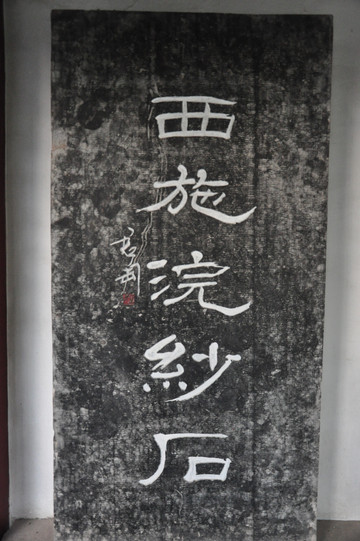 西施浣紗石